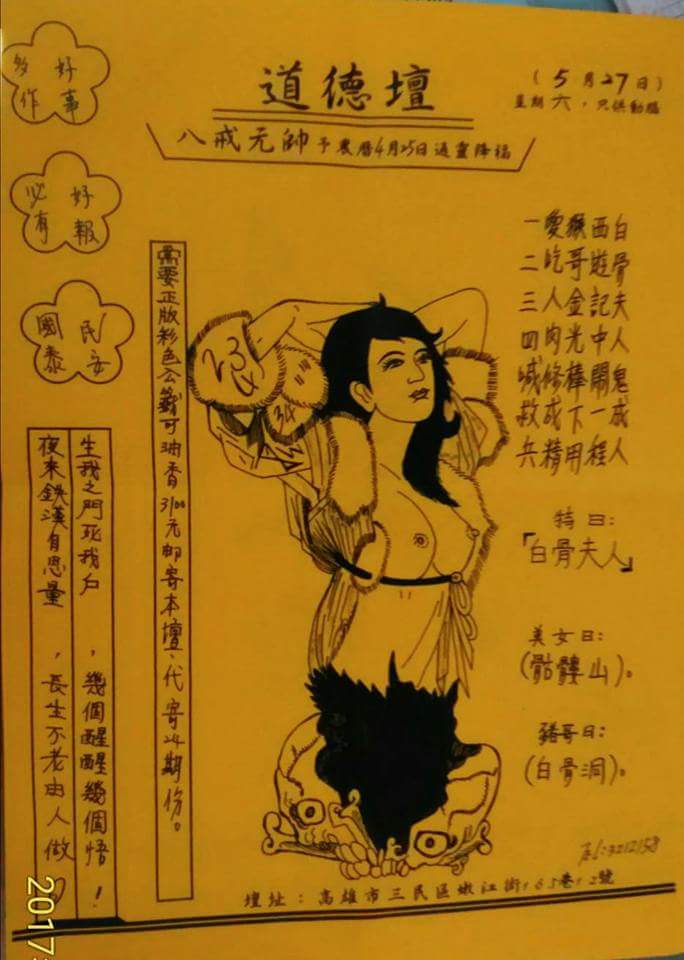 道德壇
(5月27日)
星期六,只供動腦
八戒元帥予農曆4月25日通靈降福
好事
多作
好報
必有
民安
國泰
白骨夫人鬼成人
西遊記中鬧一程
猴哥金光棒下用
愛吃人肉修成精
一二三四喊救兵
特曰:
「白骨夫人」
美女曰:
(骷髏山)。
豬哥曰:
(白骨洞)。
需要正版彩色公籤可油香3100元郵寄本壇、代寄24期份。
生我之門死我戶,幾個醒醒幾個悟!
夜來鉄漢自思量,長生不老由人做!
34
Tel:3212158
壇址:高雄市三民區嫩江街165巷12號
2017